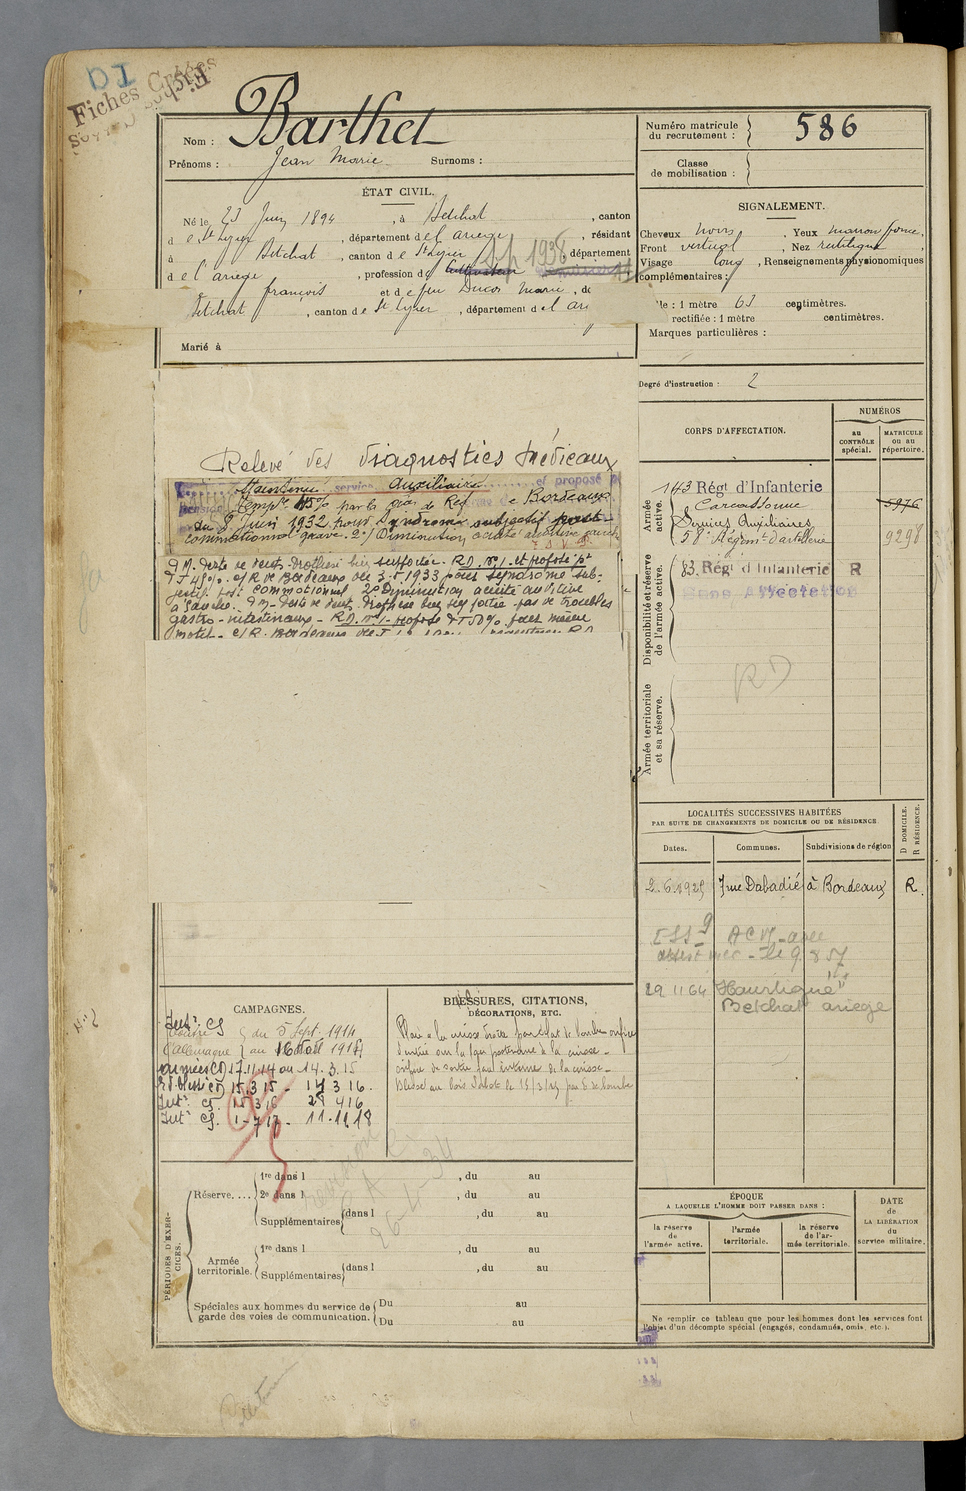 DI
Fiches Croisées
Nom : Barthet
Prénoms : Jean Marie Surnoms :
ÉTAT CIVIL.
Né le 23 Juin 1894, à Betchat, canton
de St Lizier, département de l'ariège, résidant
à Betchat, canton de St Lizier département
de l'ariège, profession de Cultivateur
françois et de feu Ducos Marie, d
Betchat, canton de St Lizier, département de l'ari
Marié à
Numéro matricule du recrutement : 586
Classe de mobilisation :
SIGNALEMENT.
Cheveux noirs, Yeux marron foncé,
Front vertical, Nez rectiligne,
Visage long, Renseignements physionomiques
complémentaires :
lle : 1 mètre 63 centimètres.
rectifiée : 1 mètre centimètres.
Marques particulières :
Degré d'instruction : 2
Relevé des diagnostics médicaux
Maintenu service auxiliaire et proposé p
par la de Bordeaux
du Juin 1932 pour Syndrome subjectif post
commotionnel grave. 2°/ Diminution acuité auditive gauche
R.D. n°1 et proposé pr
de Bordeaux 1933 pour syndrome sub-
jectif post commotionnel 2° Diminution acuité auditive
à gauche. pas de troubles
gastro-intestinaux - R.D. n°1 - proposé 50% pour même
motif - Bordeaux
CORPS D'AFFECTATION.
NUMÉROS
au CONTRÔLE spécial.
MATRICULE ou au répertoire.
Armée active.
143 Régt d'Infanterie
Carcassonne 5976
Services Auxiliaires
58e Régimt d'artillerie 9298
Disponibilité et réserve de l'armée active.
83 Régt d'Infanterie R
Sans Affectation
RD
Armée territoriale et sa réserve.
LOCALITÉS SUCCESSIVES HABITÉES
PAR SUITE DE CHANGEMENTS DE DOMICILE OU DE RÉSIDENCE.
Dates. Communes. Subdivisions de région
D DOMICILE. R RÉSIDENCE.
2.6.1925 7 rue Dabadié à Bordeaux R.
ACVG
le 9 8 57
29 11 64 "Hourtigué"
Betchat ariege
CAMPAGNES.
Intr CS
contre du 5 Sept. 1914
l'allemagne au
armées (D) 17.11.14 au 14.3.15
15.3.15 - 14 3 16.
Intr CS. 15 3 16 28 4 16
Intr CS. 1-7 17 - 11.11.18
BLESSURES, CITATIONS,
DÉCORATIONS, ETC.
Plaie à la cuisse droite par éclat de bombe orifice
d'entrée sur la face postérieure de la cuisse -
orifice de sortie face interne de la cuisse -
Blessé au bois Sabot le 15/3/15 par E. de bombe
PÉRIODES D'EXERCICES.
Réserve....
1re dans l , du au
2e dans l , du au
Supplémentaires dans l , du au
au
Armée territoriale.
1re dans l , du au
Supplémentaires dans l , du au
Spéciales aux hommes du service de garde des voies de communication.
Du au
Du au
26-1-34
ÉPOQUE
A LAQUELLE L'HOMME DOIT PASSER DANS :
la réserve de l'armée active.
l'armée territoriale.
la réserve de l'armée territoriale.
DATE de LA LIBÉRATION du service militaire.
Ne remplir ce tableau que pour les hommes dont les services font
l'objet d'un décompte spécial (engagés, condamnés, omis, etc.).